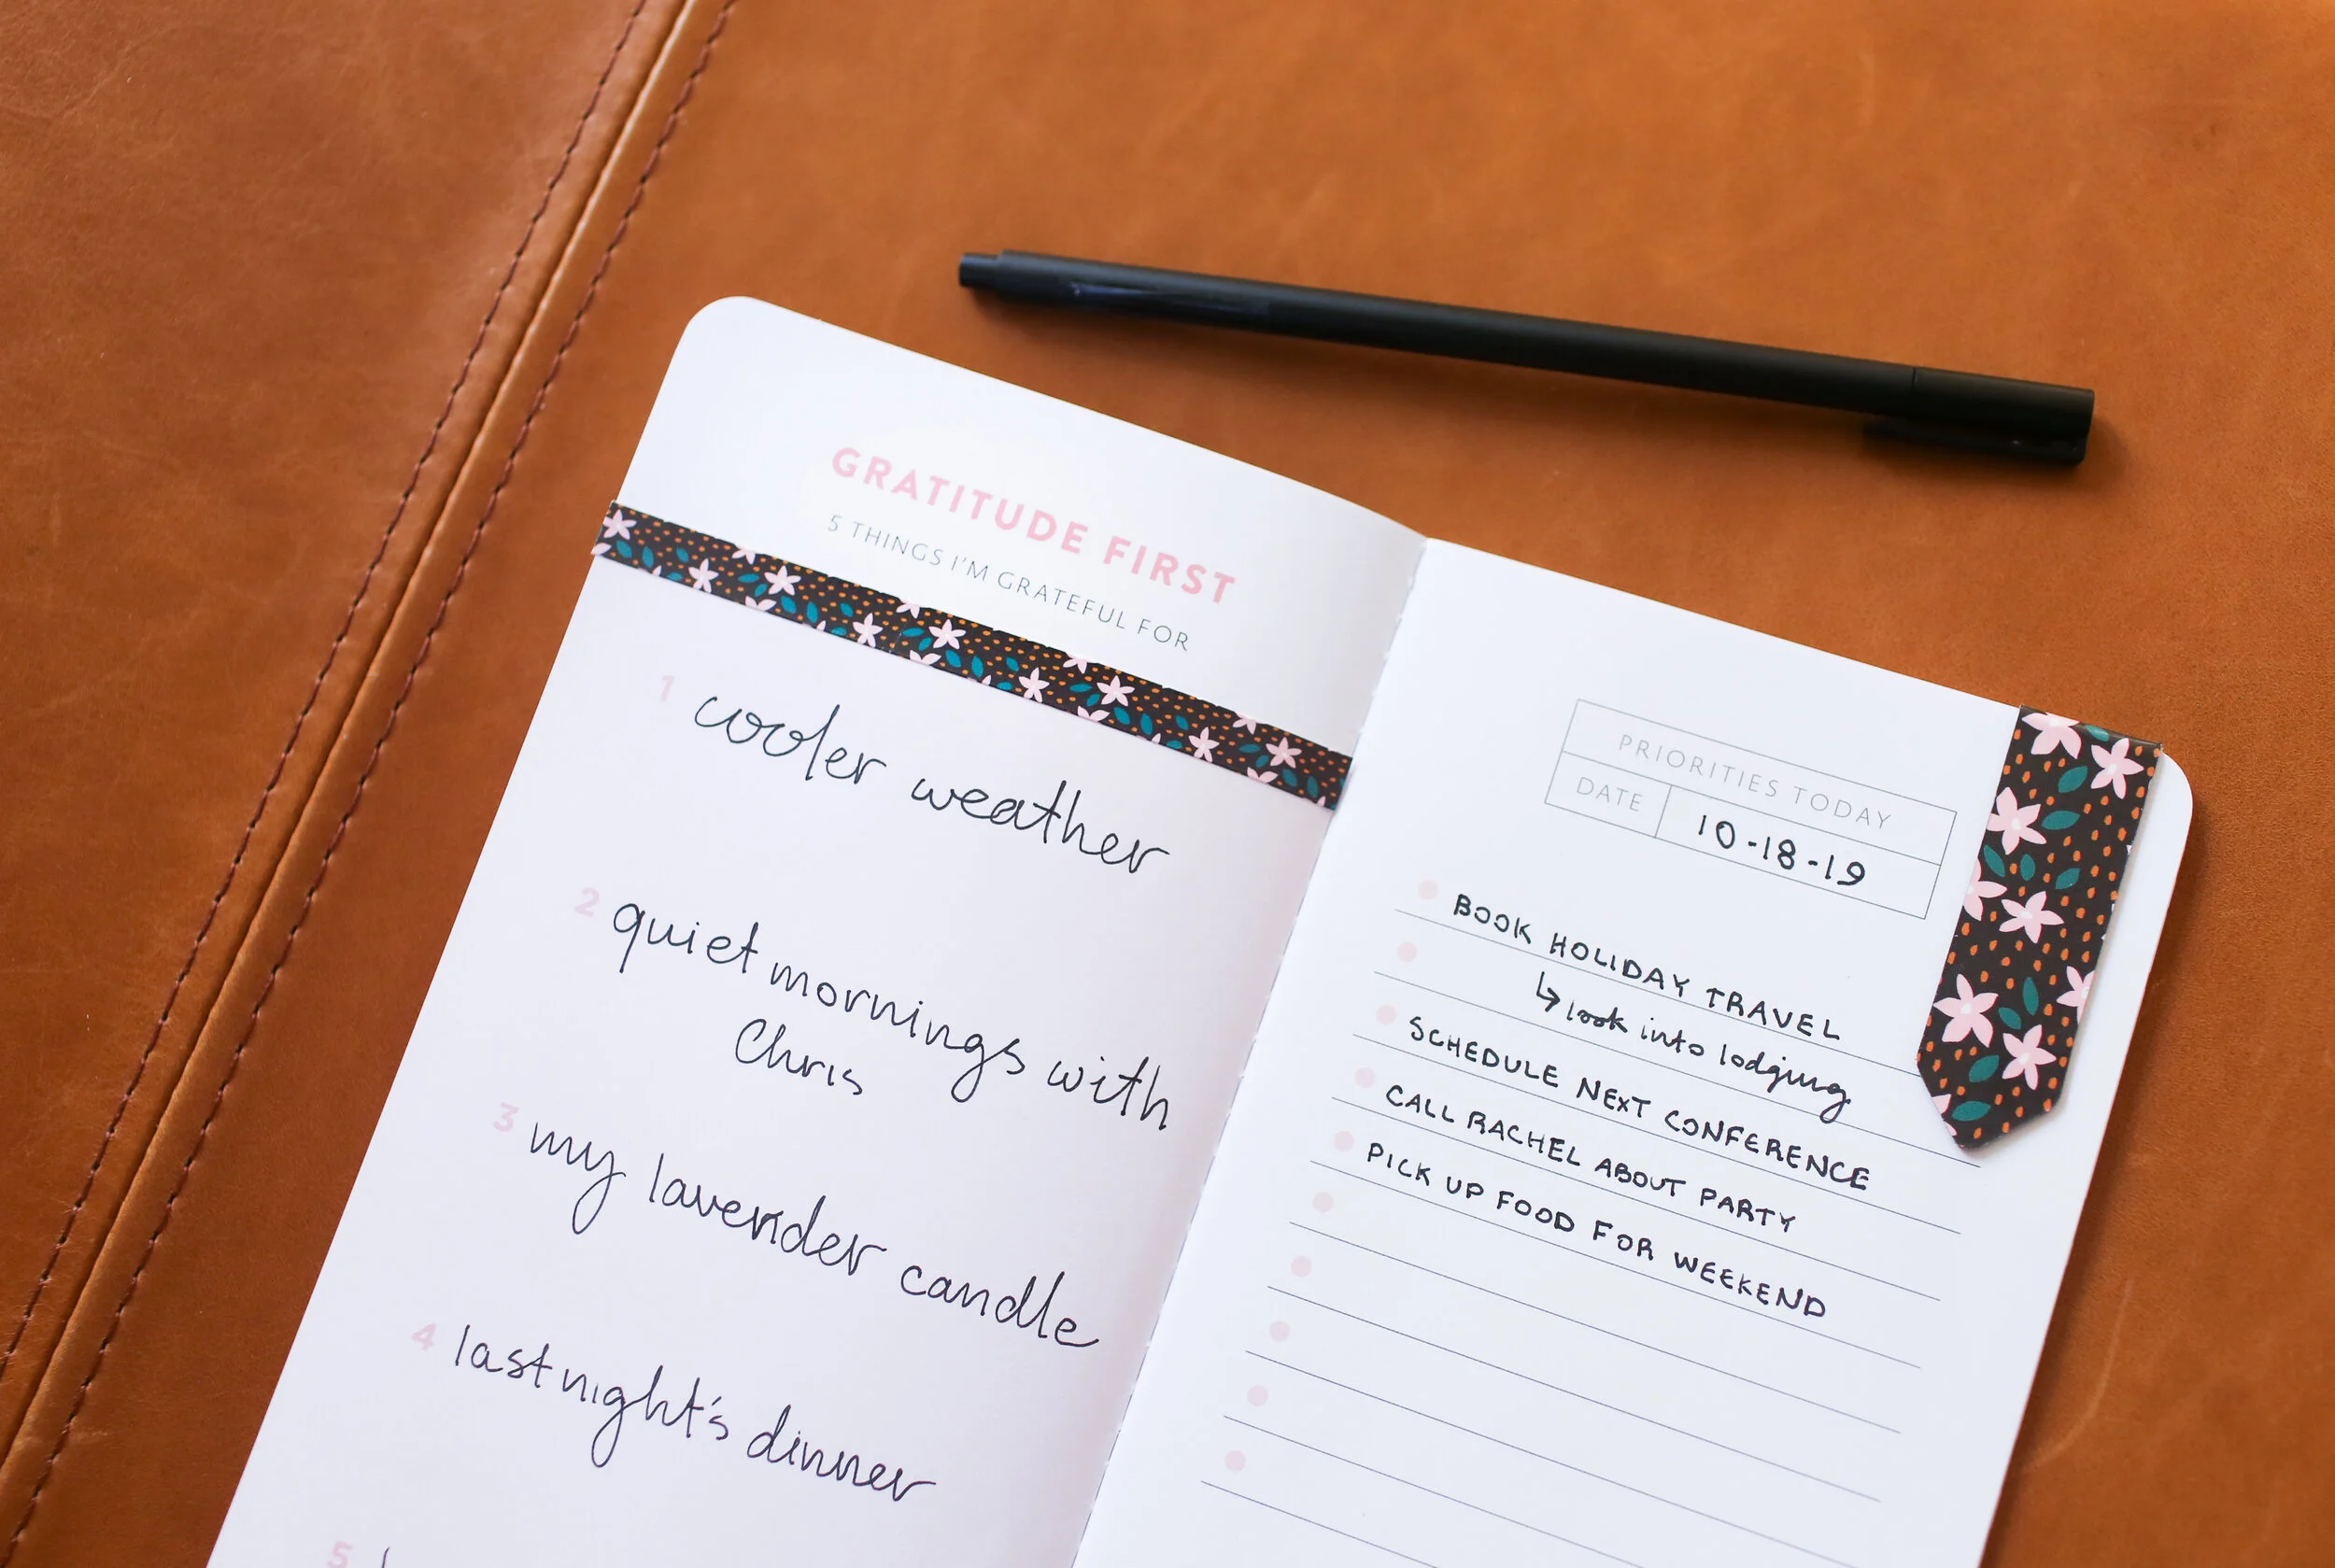 GRATITUDE FIRST
5 THINGS I'M GRATEFUL FOR
1 cooler weather
2 quiet mornings with
Chris
3 my lavender candle
4 last night's dinner
5
PRIORITIES TODAY
DATE 10-18-19
BOOK HOLIDAY TRAVEL
↳ look into lodging
SCHEDULE NEXT CONFERENCE
CALL RACHEL ABOUT PARTY
PICK UP FOOD FOR WEEKEND